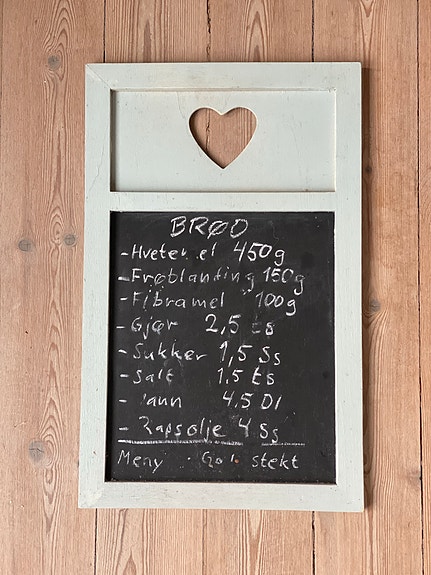 BRØD
- Hvetemel 450g
- Frøblanding 150g
- Fibramel 100g
- Gjær 2,5 ts
- Sukker 1,5 Ss
- Salt 1,5 ts
- Vann 4,5 Dl
- Rapsolje 4 Ss
Meny stekt